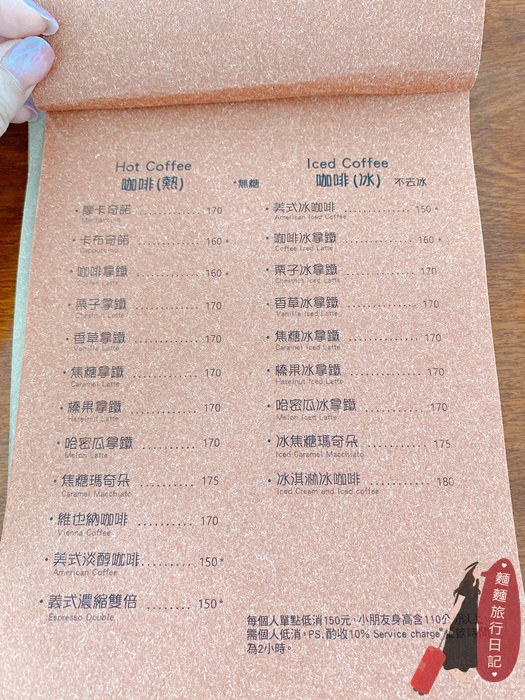 Hot Coffee
咖啡(熱) *無糖
摩卡奇諾 ............ 170
卡布奇諾 ............ 160*
咖啡拿鐵 ............ 160*
栗子拿鐵 ............ 170
Chestnut Latte
香草拿鐵 ............ 170
Vanilla Latte
焦糖拿鐵 ............ 170
Caramel Latte
榛果拿鐵 ............ 170
Hazelnut Latte
哈密瓜拿鐵 .......... 170
Melon Latte
焦糖瑪奇朵 .......... 175
Caramel Macchiato
維也納咖啡 .......... 170
Vienna Coffee
美式淡醇咖啡......... 150*
American Coffee
義式濃縮雙倍 ........ 150*
Espresso Double
Iced Coffee
咖啡(冰) 不去冰
美式冰咖啡 .......... 150*
American Iced Coffee
咖啡冰拿鐵 .......... 160*
Coffee Iced Latte
栗子冰拿鐵 .......... 170
Chestnut Iced Latte
香草冰拿鐵 .......... 170
Vanilla Iced Latte
焦糖冰拿鐵 .......... 170
Caramel Iced Latte
榛果冰拿鐵 .......... 170
Hazelnut Iced Latte
哈密瓜冰拿鐵 ........ 170
Melon Iced Latte
冰焦糖瑪奇朵 ........ 175
Iced Caramel Macchiato
冰淇淋冰咖啡 ........ 180
Iced Cream and Iced coffee
每個人單點低消150元,小朋友身高含110公
需個人低消,PS,酌收10% Service charge
為2小時。
麵麵旅行日記